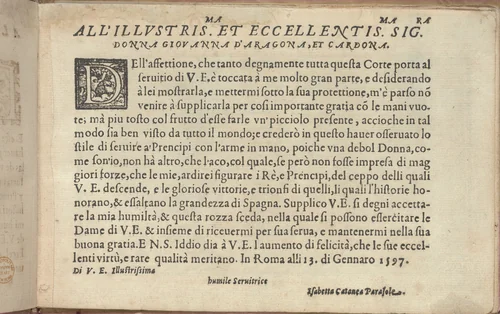 ALL'ILLVSTRIS.MA ET ECCELLENTIS.MA SIG.RA
DONNA GIOVANNA D'ARAGONA, ET CARDONA.
DEll'affettione, che tanto degnamente tutta questa Corte porta al
seruitio di V. E. è toccata à me molto gran parte, e desiderando
à lei mostrarla, e mettermi sotto la sua protettione, m'è parso nõ
venire à supplicarla per cosi importante gratia cõ le mani vuo-
te; mà piu tosto col frutto d'esse farle vn' picciolo presente, accioche in tal
modo sia ben visto da tutto il mondo; e crederò in questo hauer osseruato lo
stile di seruire a' Prencipi con l'arme in mano, poiche vna debol Donna, co-
me son'io, non hà altro, che l'aco, col quale, se però non fosse impresa di mag
giori forze, che le mie, ardirei figurare i Rè, e Prencipi, del ceppo delli quali
V. E. descende, e le gloriose vittorie, e trionfi di quelli, li quali l'historie ho-
norano, & essaltano la grandezza di Spagna. Supplico V. E. si degni accetta-
re la mia humiltà, & questa rozza sceda, nella quale si possono essercitare le
Dame di V. E. & insieme di riceuermi per sua serua, e mantenermi nella sua
buona gratia. E N. S. Iddio dia à V. E. l'aumento di felicità, che le sue eccel-
lenti virtù, e rare qualità meritano. In Roma alli 13. di Gennaro 1597.
Di V. E. Illustrissima
humile Seruitrice
Isabetta Catanea Parasole.